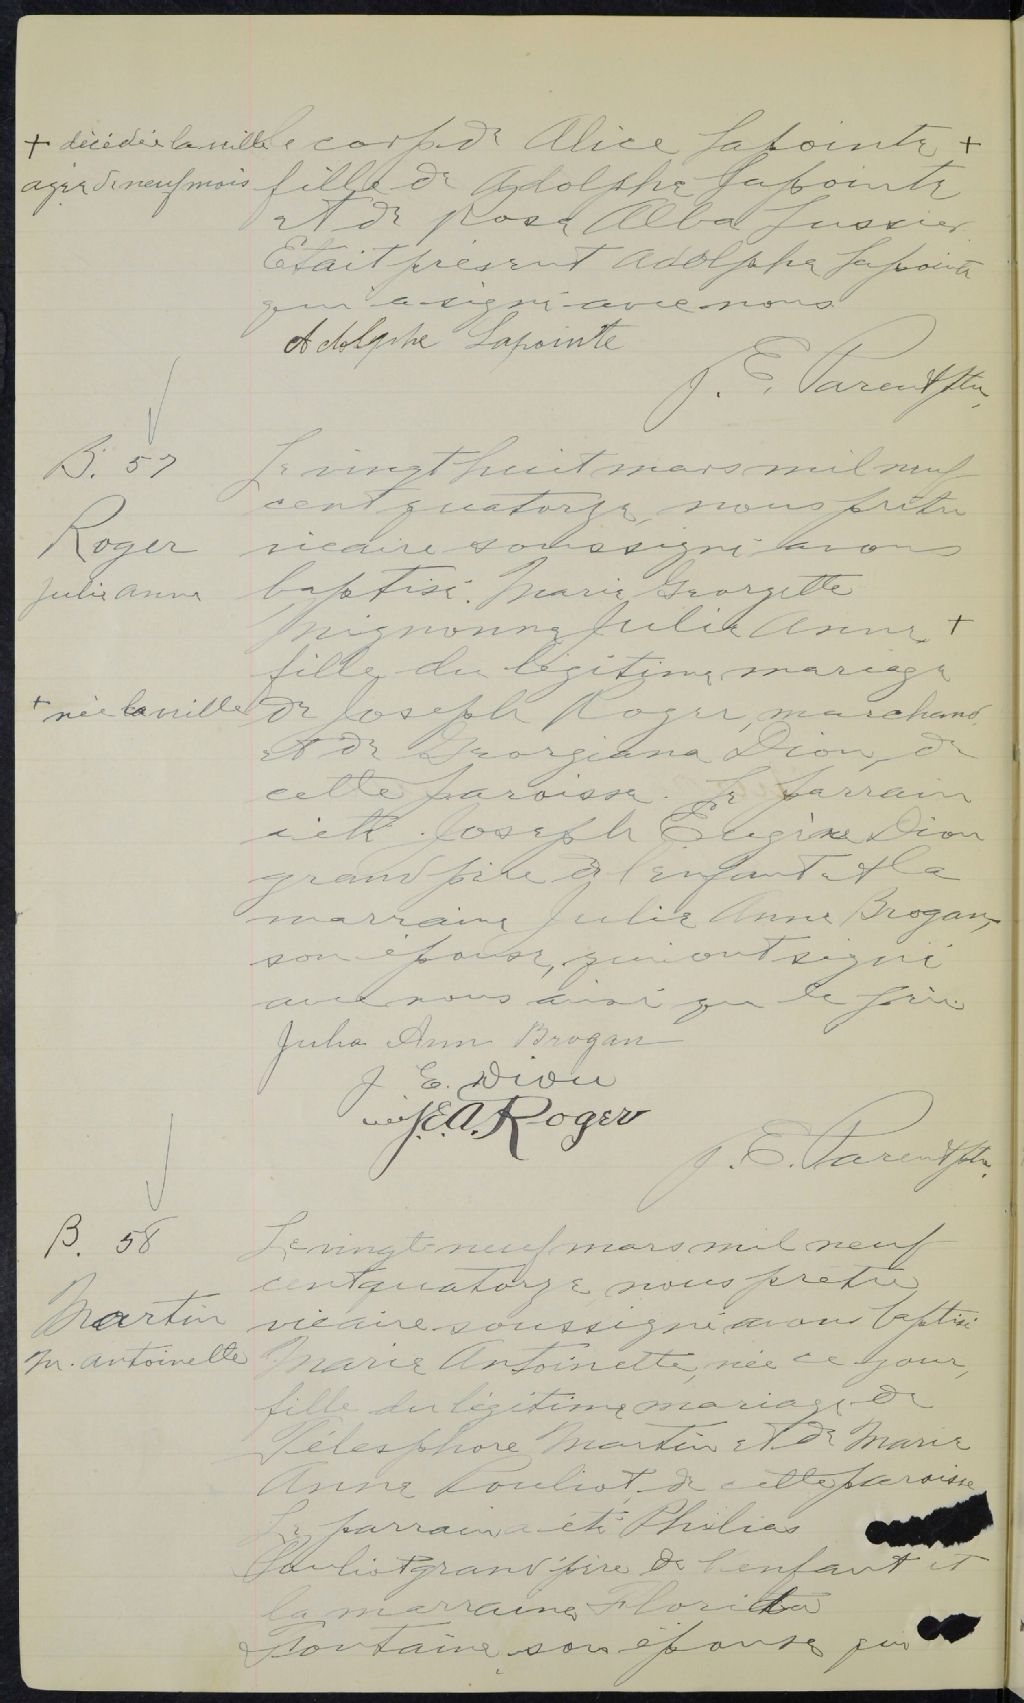 + décédée la veille
agée de neuf mois
le corps de Alice Lapointe +
fille de Adolphe Lapointe
et de Rose Alba Lussier
Etait présent Adolphe Lapointe
qui a signé avec nous
Adolphe Lapointe
J. E. Parent ptre,
B. 57
Roger
Julie Anne
+ née la veille
Le vingt huit mars mil neuf
cent quatorze, nous prêtre
vicaire soussigné avons
baptisé. Marie Georgette
Mignonne Julie Anne +
fille du légitime mariage
de Joseph Roger, marchand,
et de Georgiana Dion, de
cette paroisse. Le parrain
a été Joseph Eugène Dion
grand père de l'enfant et la
marraine Julie Anne Brogan,
son épouse, qui ont signé
avec nous ainsi que le père
Julia Ann Brogan
J. E. Dion
J.E.A. Roger
J. E. Parent ptre,
B. 58
Martin
M. Antoinette
Le vingt-neuf mars mil neuf
cent quatorze, nous prêtre
vicaire soussigné avons baptisé
Marie Antoinette, née ce jour,
fille du légitime mariage de
Télesphore Martin et de Marie
Anne Pouliot, de cette paroisse
Le parrain a été Philias
Pouliot grand'père de l'enfant et
la marraine Florida
Fontaine son épouse qui